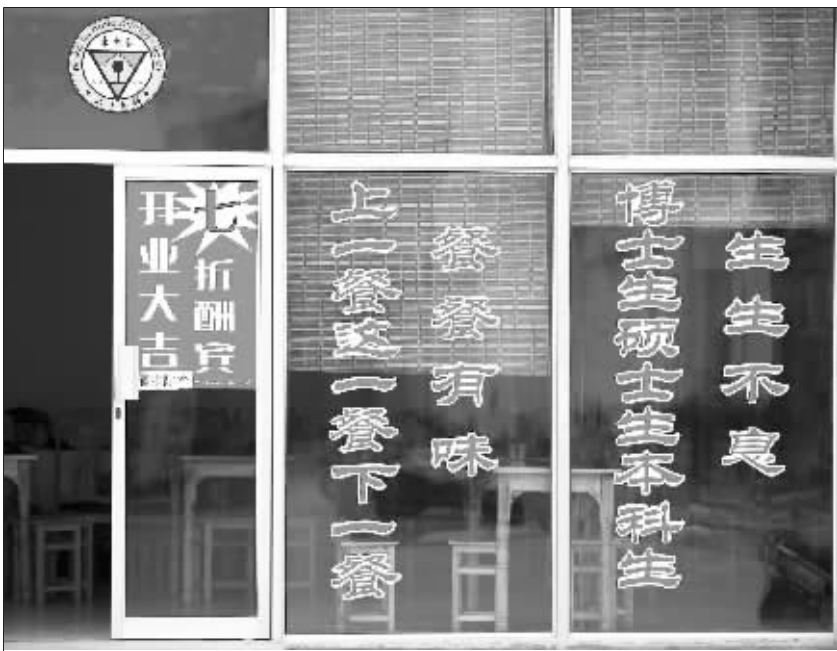 开业大吉
七折酬宾
上一餐这一餐下一餐
餐餐有味
博士生硕士生本科生
生生不息